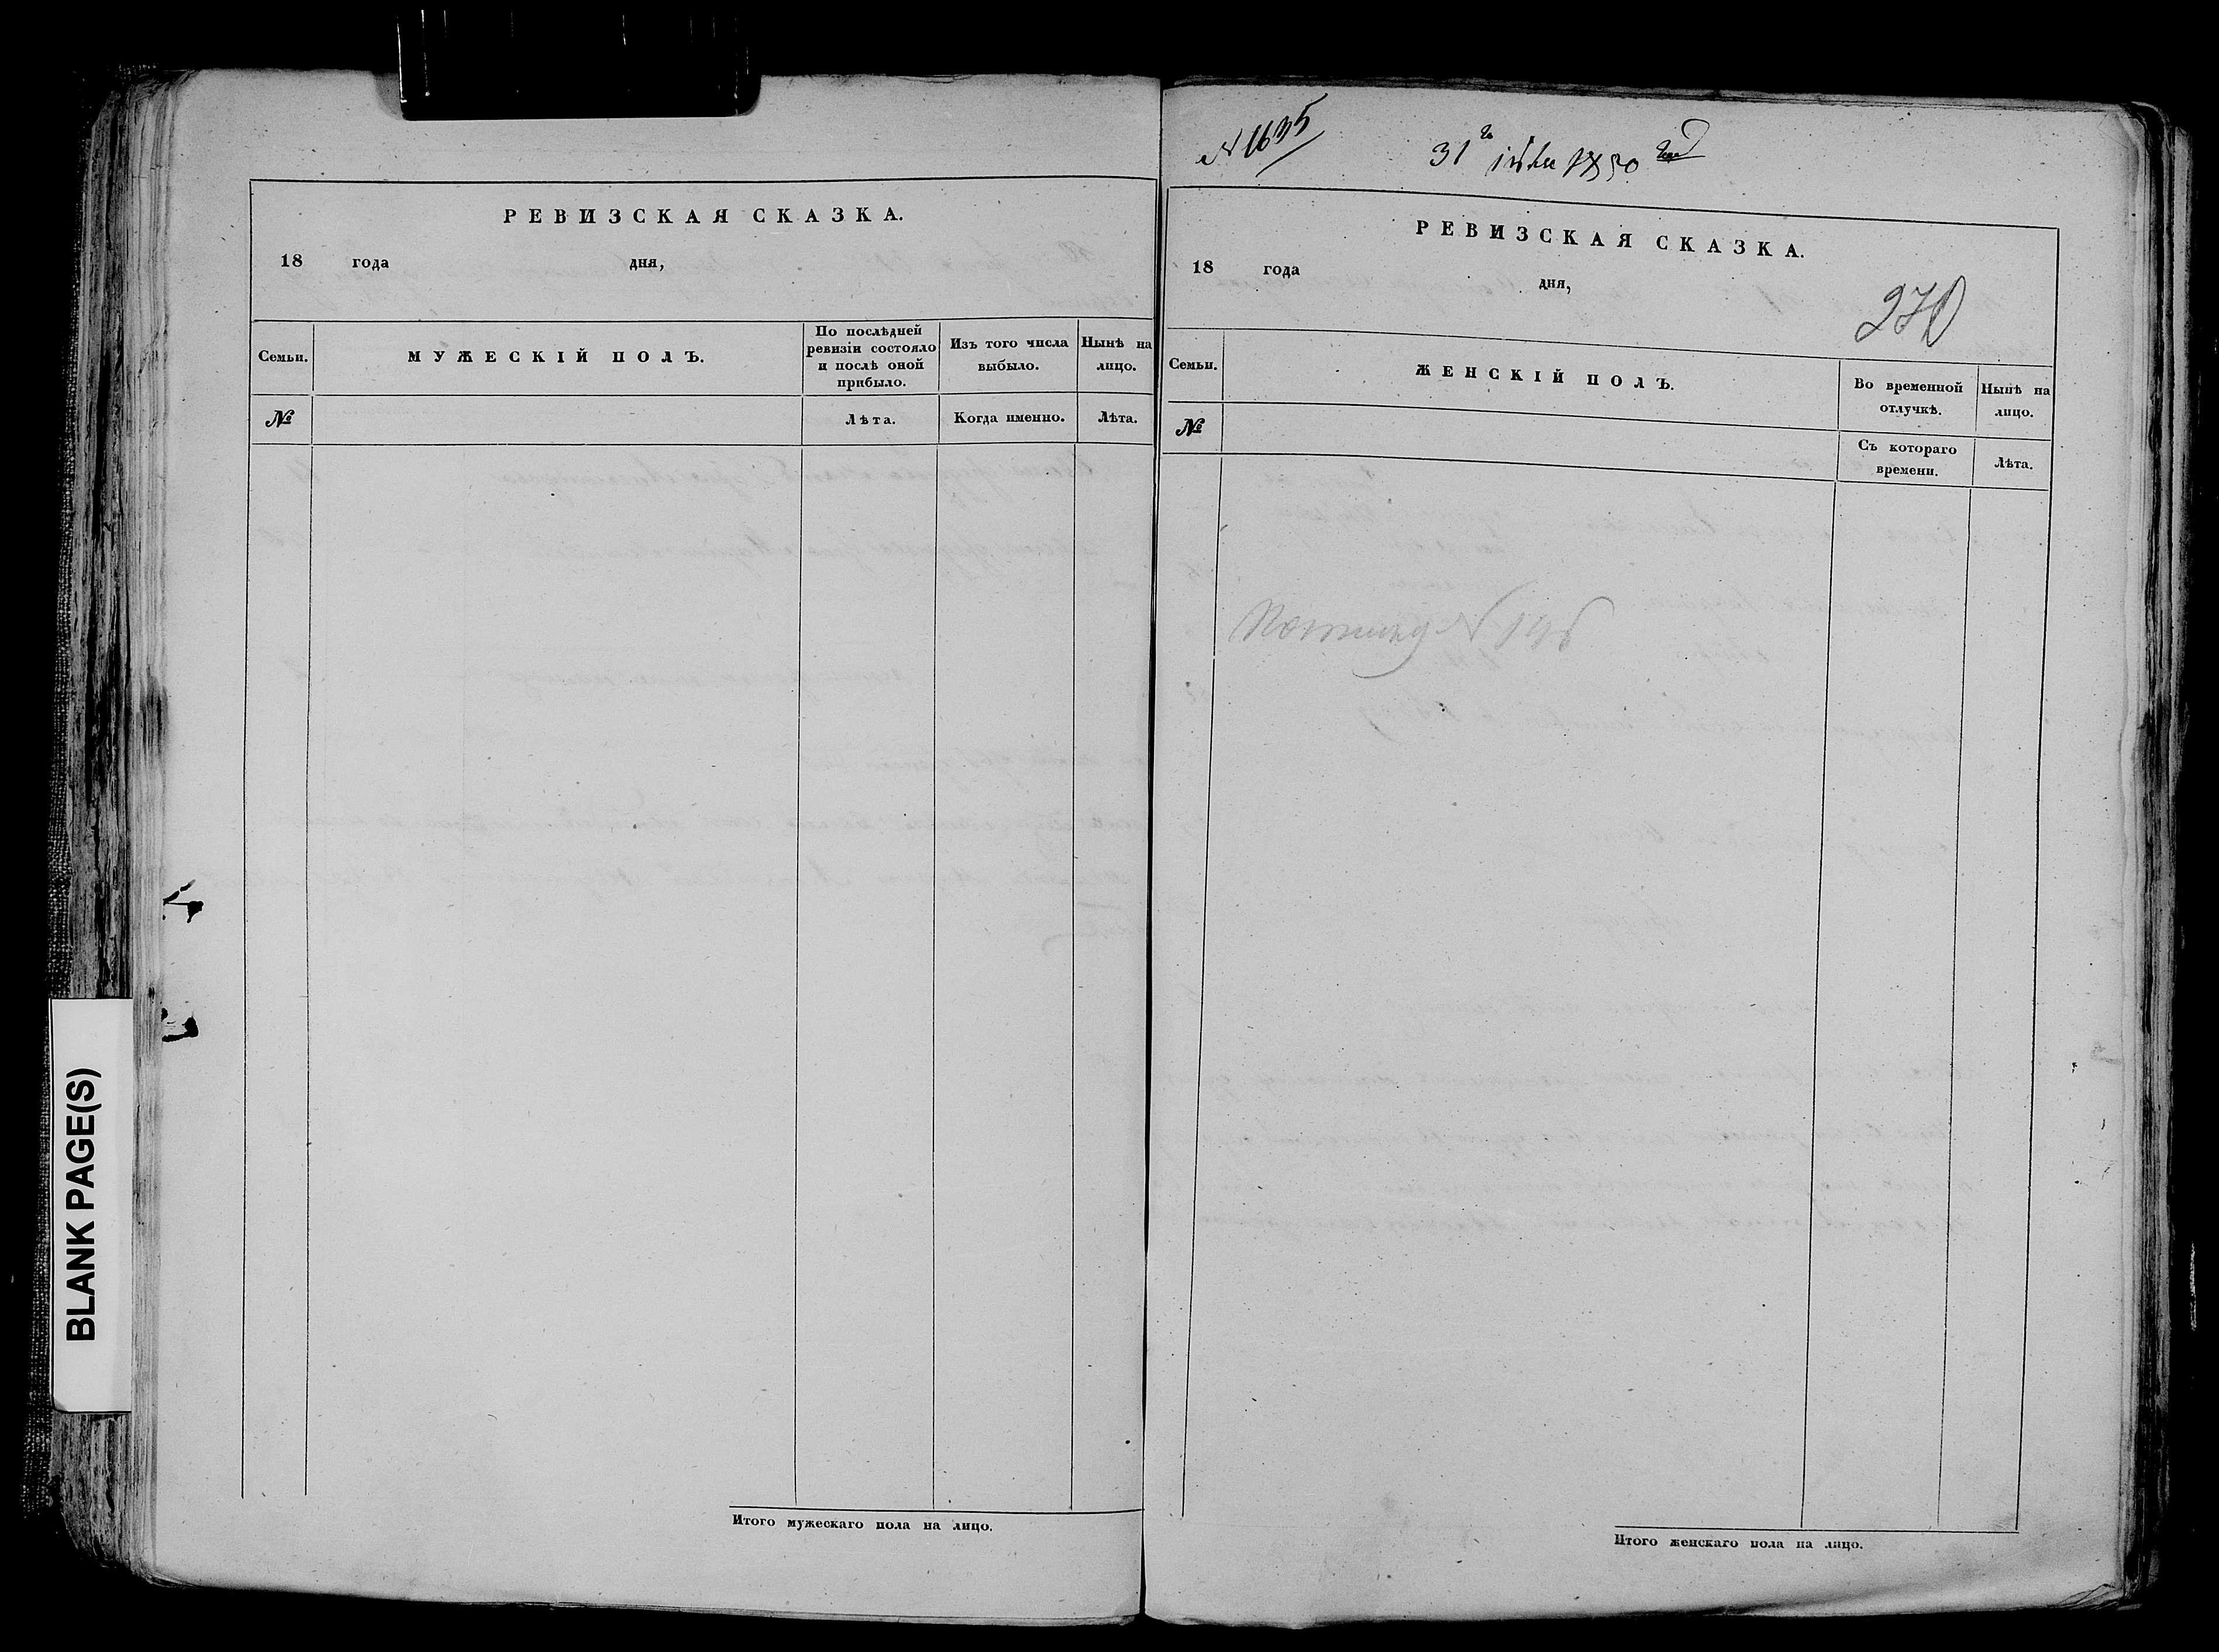 РЕВИЗСКАЯ СКАЗКА.
18 года дня,
Семьи.
МУЖЕСКІЙ ПОЛЪ.
По послѣдней ревизіи состояло и послѣ оной прибыло.
Изъ того числа выбыло.
Нынѣ на лицо.
№
Лѣта.
Когда именно.
Лѣта.
Итого мужескаго пола на лицо.
31 1850
РЕВИЗСКАЯ СКАЗКА.
18 года дня,
270
Семьи.
ЖЕНСКІЙ ПОЛЪ.
Во временной отлучкѣ.
Нынѣ на лицо.
№
Съ котораго времени.
Лѣта.
Итого женскаго пола на лицо.
BLANK PAGE(S)